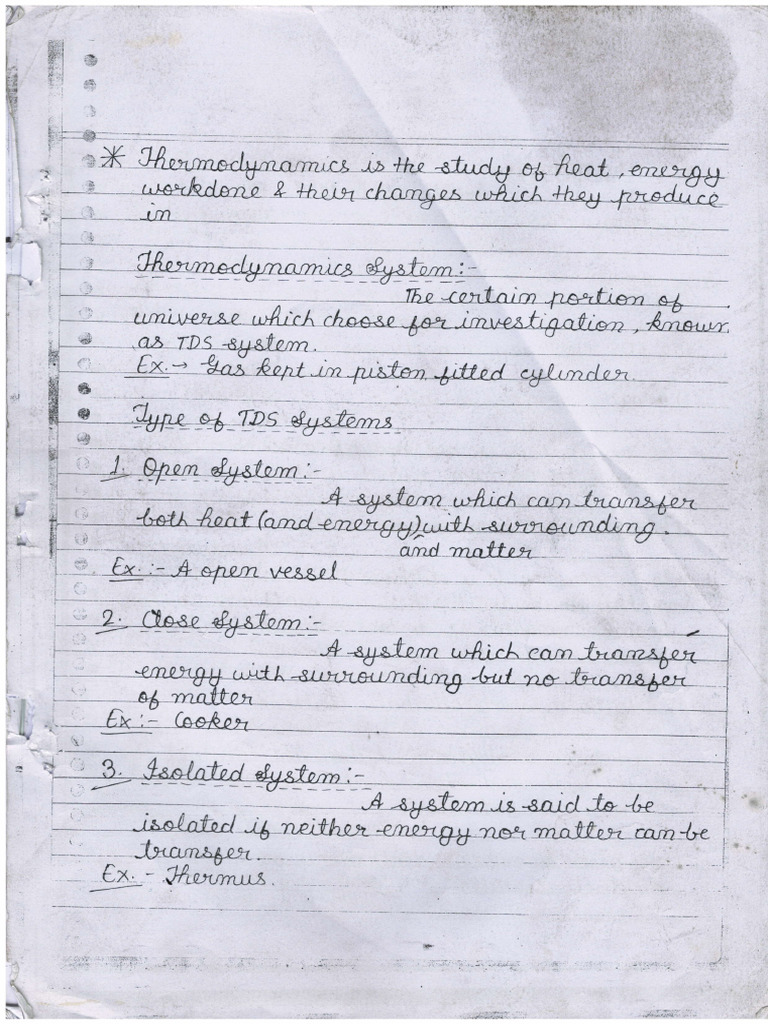 * Thermodynamics is the study of heat, energy
workdone & their changes which they produce
in
Thermodynamics System:-
The certain portion of
universe which choose for investigation, known
as TDS system.
Ex. → Gas kept in piston fitted cylinder.
Type of TDS Systems
1. Open System:-
A system which can transfer
both heat (and energy) with surrounding.
and matter
Ex. :- A open vessel
2. Close System:-
A system which can transfer
energy with surrounding but no transfer
of matter
Ex :- Cooker
3. Isolated System:-
A system is said to be
isolated if neither energy nor matter can be
transfer.
Ex. - Thermus.